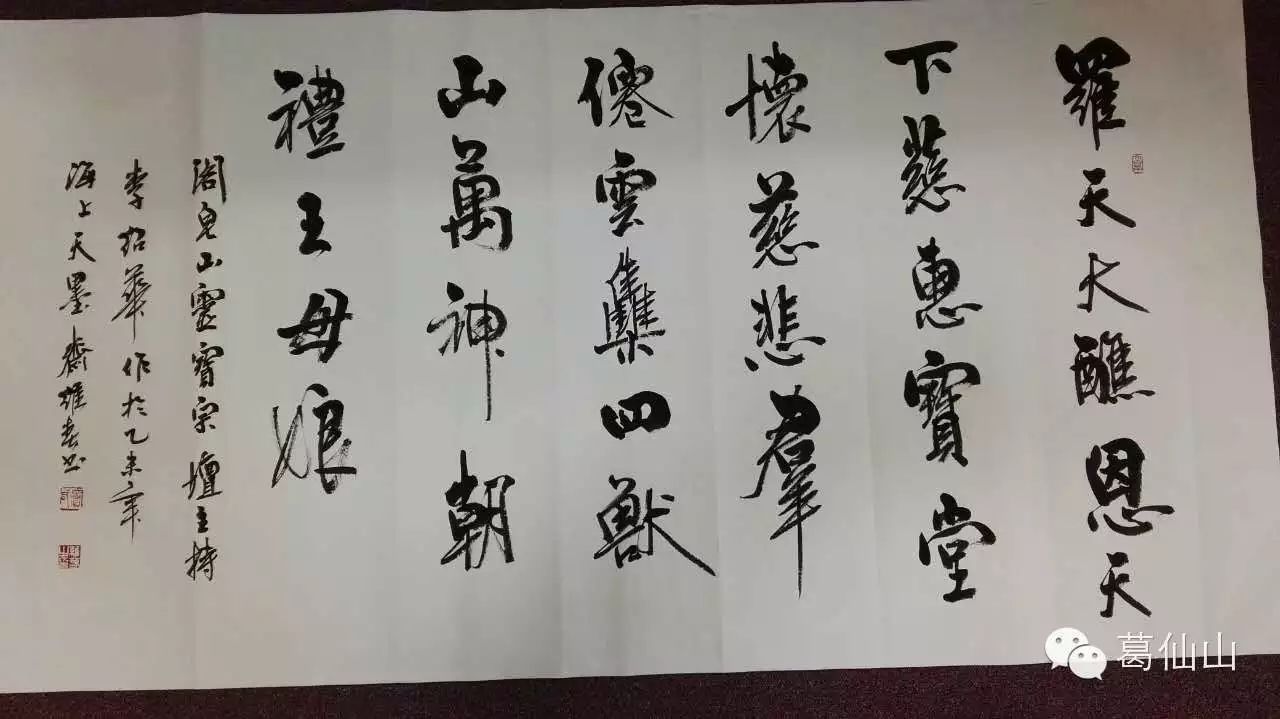 羅天大醮恩天
下慈惠寶堂
懷慈悲羣
僊雲雧四獸
山萬神朝
禮王母娘
閤皂山靈寶宗壇主持
李紹華作於乙未年
海上天墨齋雄書
葛仙山